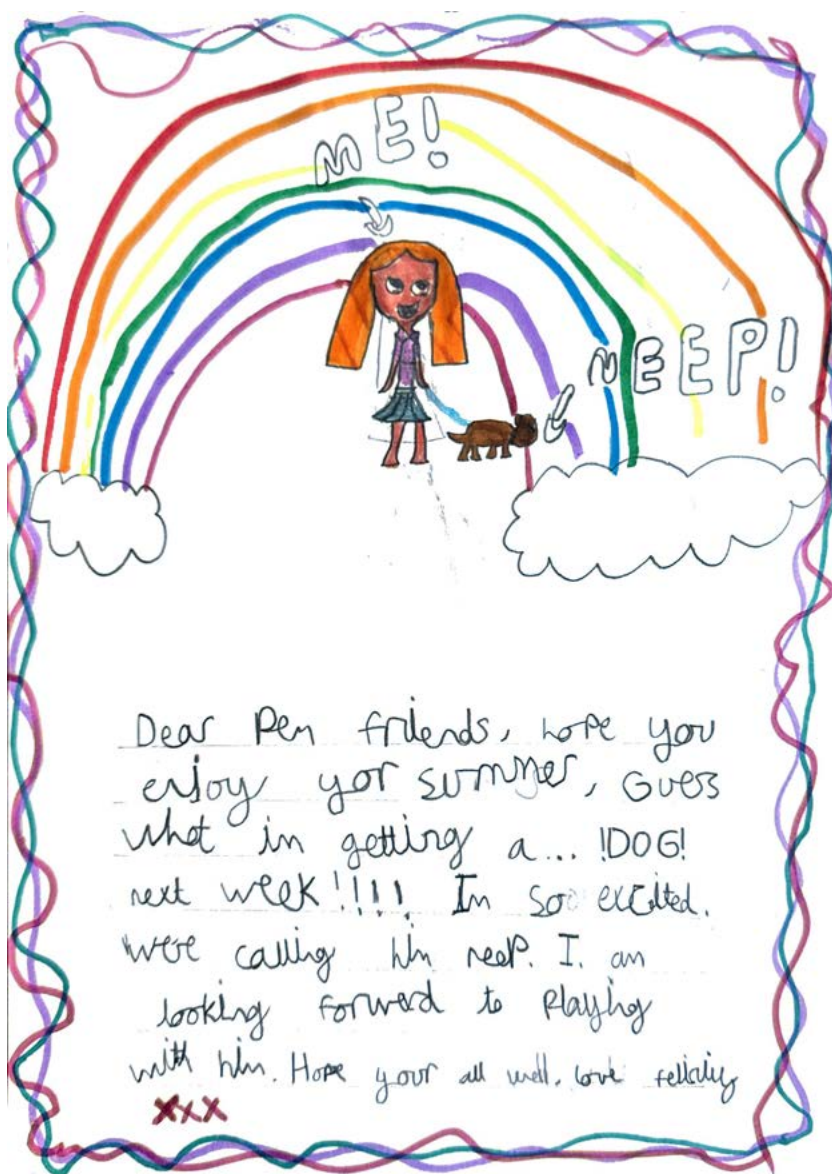 ME!
NEEP!
Dear Pen friends, hope you
enjoy yor summer, Guess
what im getting a... !DOG!
next week!!!! Im soo excited.
were calling him neep. I am
looking forward to Playing
with him. Hope your all well, love felicity
xxx